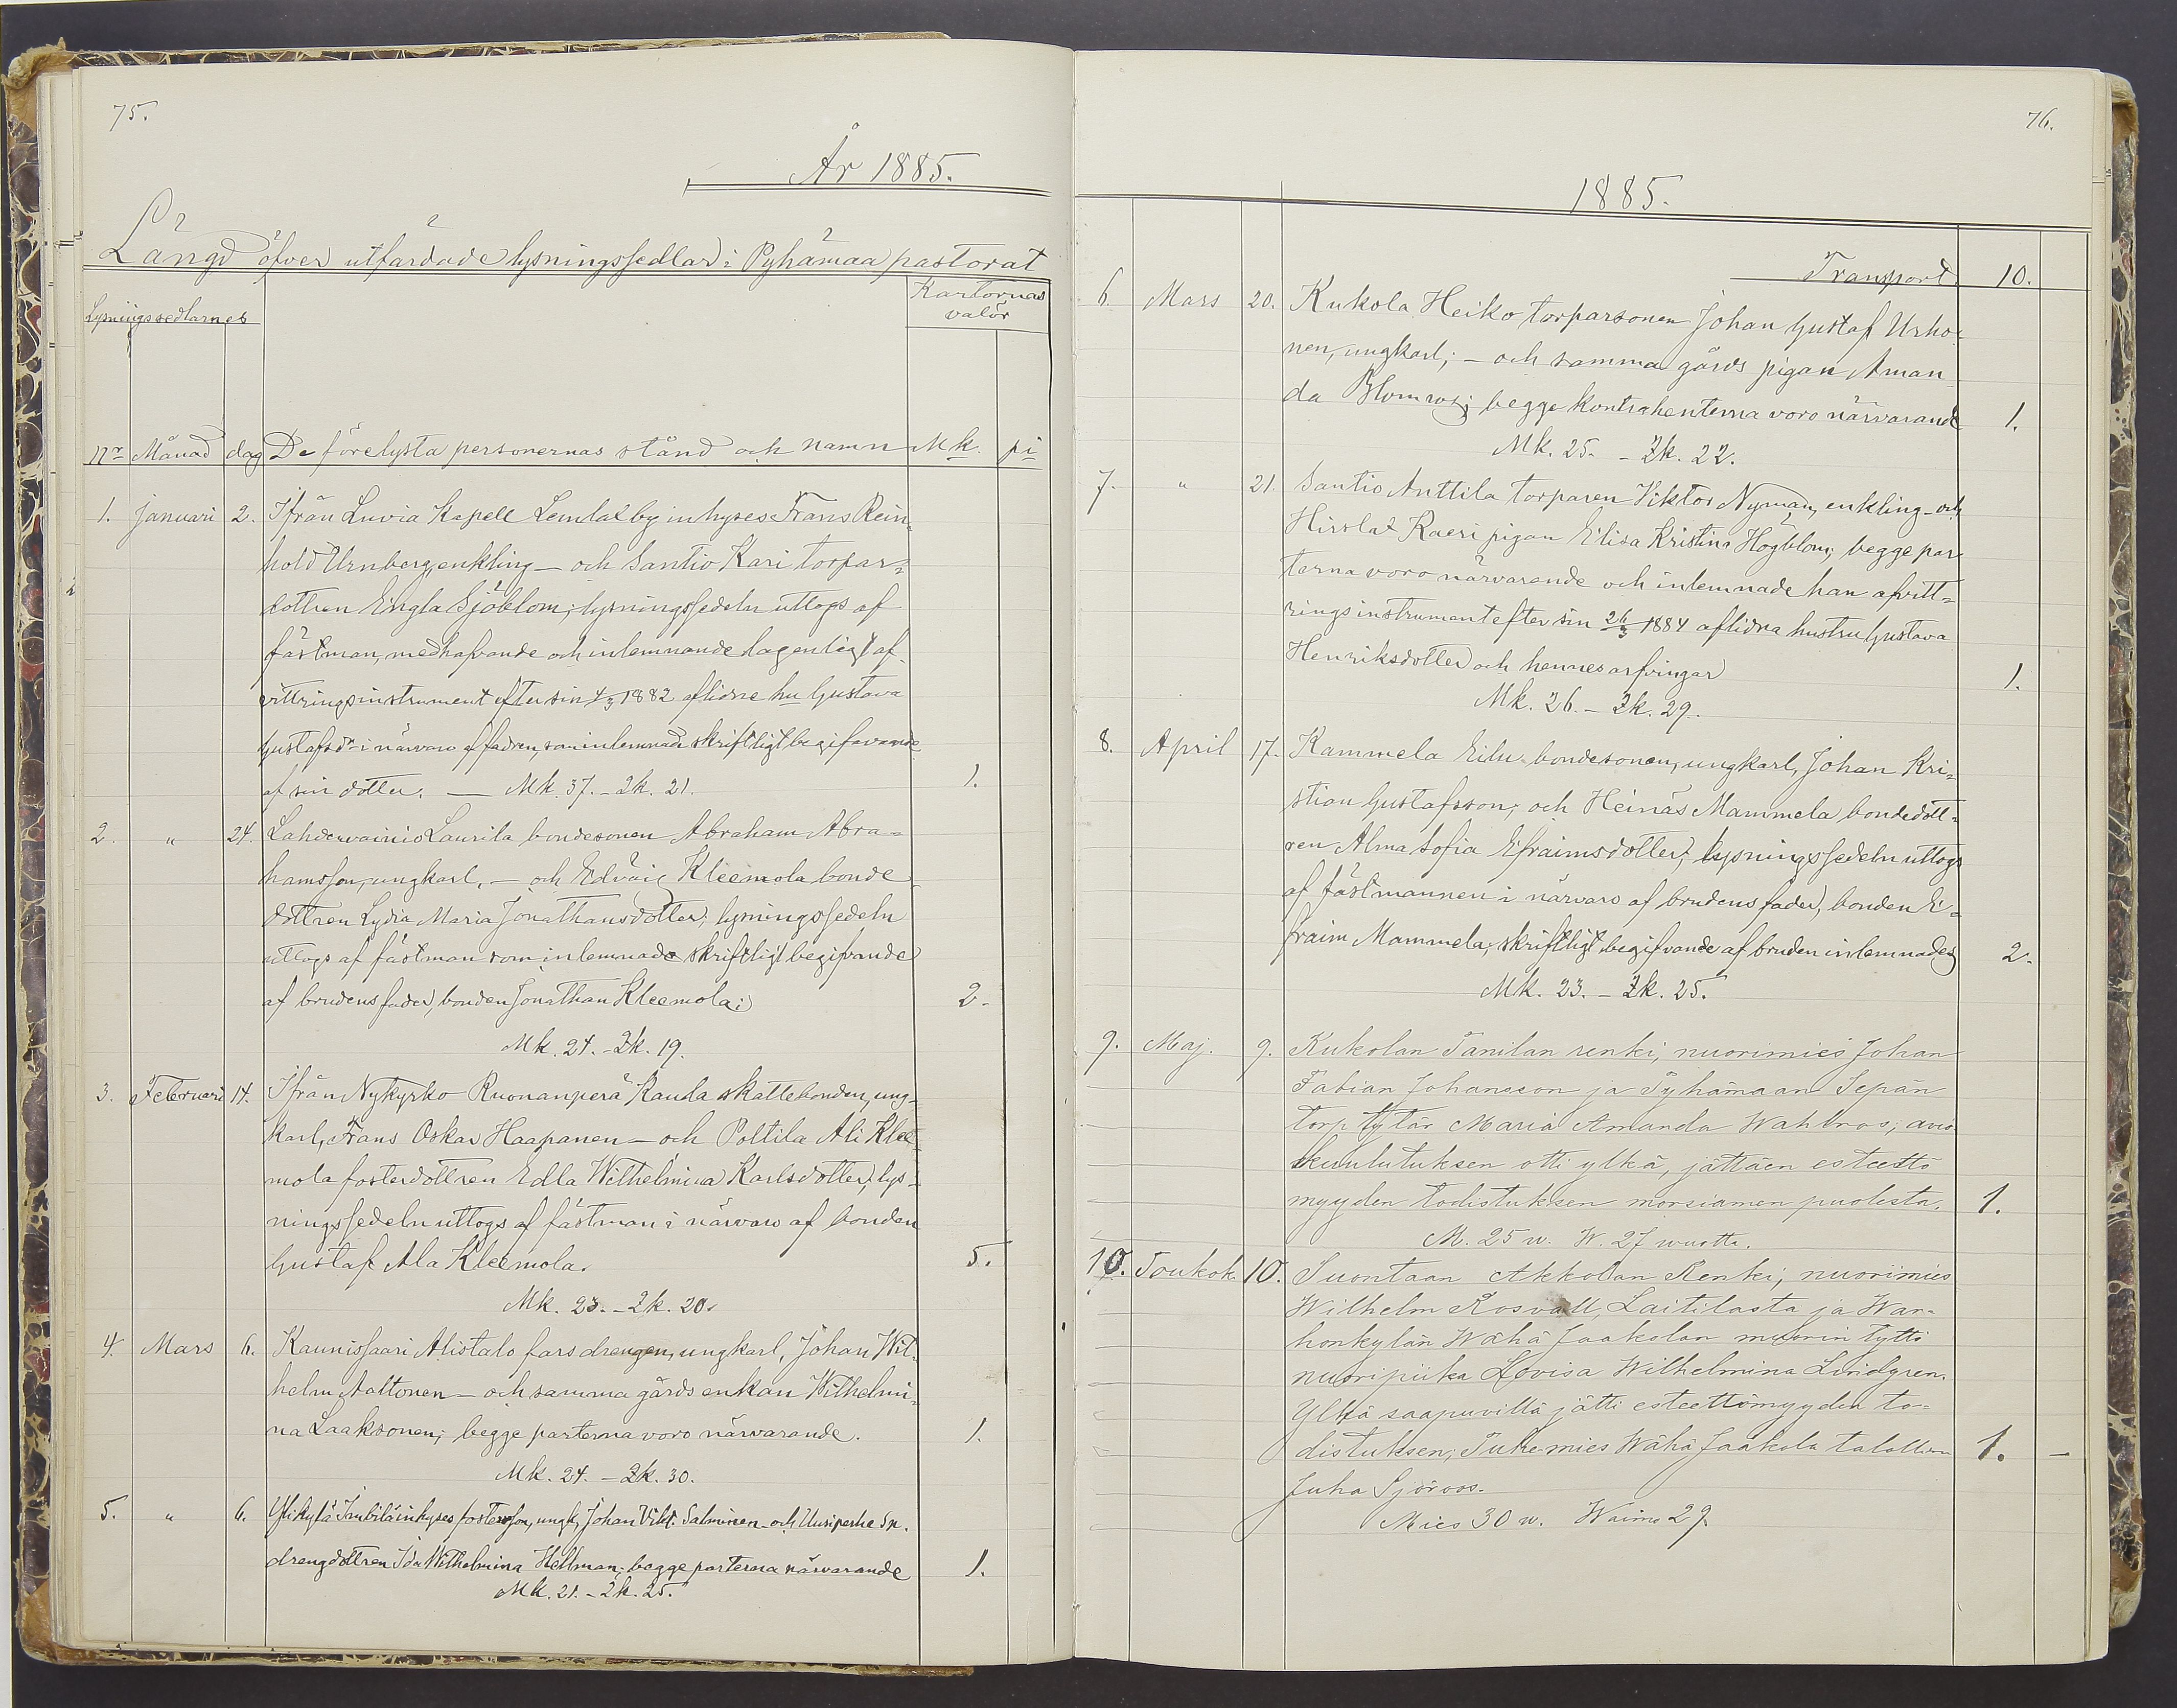 75.
År 1885.
Längd öfver utfärdade lysningssedlar i Pyhämaa pastorat
Lysningssedlarnes
Kartornas valör
Nr Månad dag De förelysta personernas stånd och namn Mk. pi
1. Januari 2. Ifrån Luvia Kapell Lemlat by inhyses Frans Rein-
hold Urnberg, enkling – och Santio Kari torpar-
dottren Engla Sjöblom; lysningssedeln uttogs af
fästman, medhafvande och inlemnande lagenligt af-
vittringsinstrument efter sin 4/3 1882 aflidne hu Gustava
Gustafsdr i närvaro af fadren, som inlemnade skriftligt begifvande
af sin dotter. — Mk. 37. – Qk. 21. 1.
2. " 24. Lahdenvainio Laurila bondesonen Abraham Abra-
hamsson, ungkarl, – och Edväis Kleemola bonde
dottren Lydia Maria Jonathansdotter; lysningssedeln
uttogs af fästman som inlemnade skriftligt begifvande
af brudens fader, bonden Jonathan Kleemola: 2.
Mk. 24. – Qk. 19.
3. Februari 14. Ifrån Nykyrko Ruonanperä Kaula skattebonden, ung-
karl, Frans Oskar Haapanen – och Poltila Ali Klee-
mola fosterdottren Edla Wilhelmina Karlsdotter; lys-
ningssedeln uttogs af fästman i närvaro af bonden
Gustaf Ala Kleemola. 5.
Mk. 23. – Qk. 20.
4. Mars 6. Kaunissaari Alistalo farsdrengen, ungkarl, Johan Wil-
helm Aaltonen – och samma gårds enkan Wilhelmi-
na Laaksonen; begge parterna voro närvarande. 1.
Mk. 24. – Qk. 30.
5. " 6. Ylikylä inhyses fosterson, ungk, Johan Vikt. Salminen – och Uusiperhe Sn.
drengdottren Ida Wilhelmina Hellman; begge parterna närvarande 1.
Mk. 21. – Qk. 25.
76.
1885.
Transport 10.
6. Mars 20. Kukola Heiko torparsonen Johan Gustaf Urho-
nen, ungkarl; – och samma gårds pigan Aman-
da Blomros; begge kontrahenterna voro närvarande 1.
Mk. 25. – Qk. 22.
7. " 21. Santio Anttila torparen Viktor Nyman, enkling – och
Hirslat Kaeri pigan Elisa Kristina Högblom; begge par-
terna voro närvarande och inlemnade han afvitt-
ringsinstrument efter sin 26/3 1884 aflidna hustru Gustava
Henriksdotter och hennes arfvingar 1.
Mk. 26. – Qk. 29.
8. April 17. Kammela Eilu bondesonen, ungkarl, Johan Kri-
stian Gustafsson; och Heinäs Mammela bondedott-
ren Alma Sofia Efraimsdotter; lysningssedeln uttogs
af fästmannen i närvaro af brudens fader, bonden E-
fraim Mammela; skriftligt begifvande af bruden inlemnades 2.
Mk. 23. – Qk. 25.
9. Maj. 9. Kukolan Tanilan renki, nuorimies Johan
Fabian Johansson ja Pyhämaan Sepän
torp. tytär Maria Amanda Wahlros; avio
kuulutuksen otti ylkä, jättäen esteettö
myyden todistuksen morsiamen puolesta. 1.
M. 25 w. W. 27 wuotta.
10. Toukok 10. Suontaan Akkolan Renki, nuorimies
Wilhelm Rosvall, Laitilasta ja War-
honkylän Wähä Jaakolan muorin tyttö
nuoripiika Lovisa Wilhelmina Lindgren.
Ylkä saapuvilla jätti esteettömyyden to-
distuksen; Puhemies Wähä Jaakola talollinen 1. –
Juha Sjöroos.
Mies 30 w. Waimo 29.